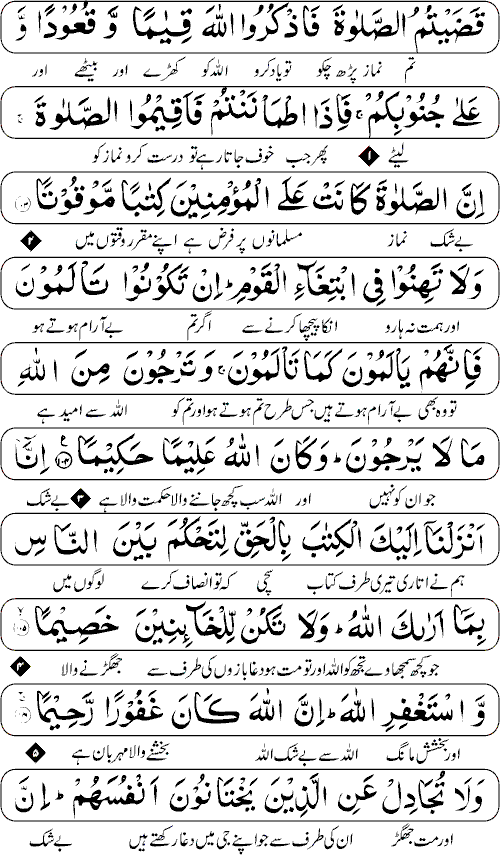 قَضَيْتُمُ الصَّلٰوةَ فَاذْكُرُوا اللّٰهَ قِيٰمًا وَّ قُعُوْدًا وَّ
تم نماز پڑھ چکو تو یاد کرو اللہ کو کھڑے اور بیٹھے اور
عَلٰى جُنُوْبِكُمْ ۚ فَاِذَا اطْمَاْنَنْتُمْ فَاَقِيْمُوا الصَّلٰوةَ ۚ
لیٹے ۱ پھر جب خوف جاتا رہے تو درست کرو نماز کو
اِنَّ الصَّلٰوةَ كَانَتْ عَلَى الْمُؤْمِنِيْنَ كِتٰبًا مَّوْقُوْتًا ۱۰۳
بے شک نماز مسلمانوں پر فرض ہے اپنے مقرر وقتوں میں ۲
وَلَا تَهِنُوْا فِى ابْتِغَآءِ الْقَوْمِ ؕ اِنْ تَكُوْنُوْا تَاْلَمُوْنَ
اور ہمت نہ ہارو انکا پیچھا کرنے سے اگر تم بے آرام ہوتے ہو
فَاِنَّهُمْ يَاْلَمُوْنَ كَمَا تَاْلَمُوْنَ ۚ وَ تَرْجُوْنَ مِنَ اللّٰهِ
تو وہ بھی بے آرام ہوتے ہیں جس طرح تم ہوتے ہو اور تم کو اللہ سے امید ہے
مَا لَا يَرْجُوْنَ ؕ وَكَانَ اللّٰهُ عَلِيْمًا حَكِيْمًا ۱۰۴ اِنَّاۤ
جو ان کو نہیں اور اللہ سب کچھ جاننے والا حکمت والا ہے ۳ بے شک
اَنْزَلْنَاۤ اِلَيْكَ الْكِتٰبَ بِالْحَقِّ لِتَحْكُمَ بَيْنَ النَّاسِ
ہم نے اتاری تیری طرف کتاب سچی کہ تو انصاف کرے لوگوں میں
بِمَاۤ اَرٰىكَ اللّٰهُ ؕ وَلَا تَكُنْ لِّلْخَآئِنِيْنَ خَصِيْمًا ۱۰۵
جو کچھ سمجھاوے تجھ کو اللہ اور تو مت ہو دغابازوں کی طرف سے جھگڑنے والا ۴
وَّ اسْتَغْفِرِ اللّٰهَ ؕ اِنَّ اللّٰهَ كَانَ غَفُوْرًا رَّحِيْمًا ۱۰۶
اور بخشش مانگ اللہ سے بے شک اللہ بخشنے والا مہربان ہے ۵
وَلَا تُجَادِلْ عَنِ الَّذِيْنَ يَخْتَانُوْنَ اَنْفُسَهُمْ ؕ اِنَّ
اور مت جھگڑ ان کی طرف سے جو اپنے جی میں دغا رکھتے ہیں بے شک